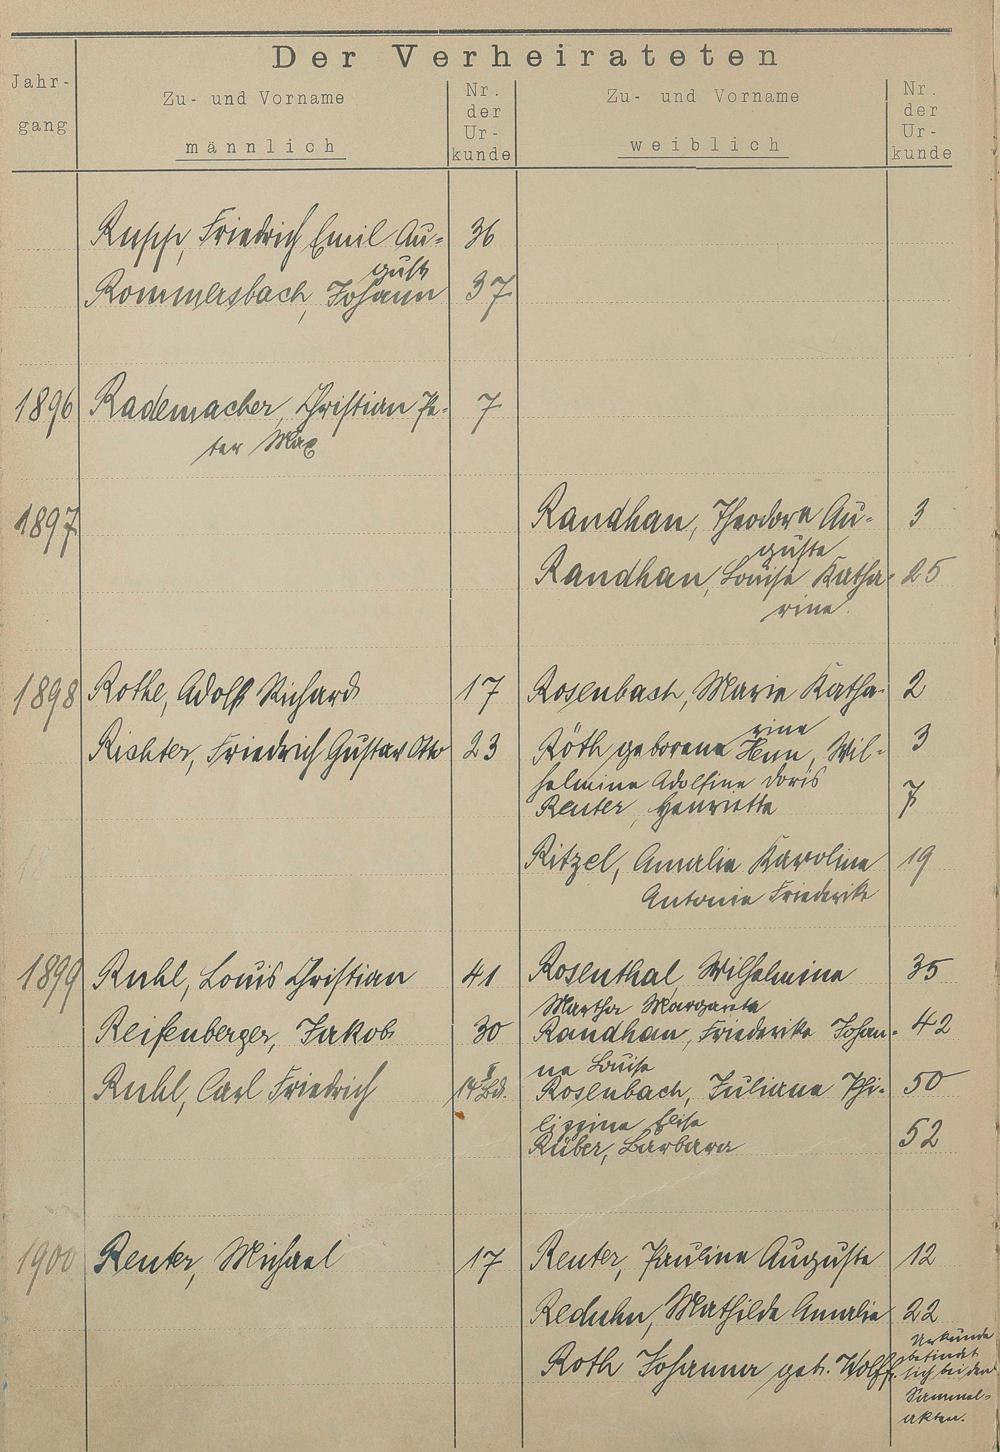 Der Verheirateten
Jahr-
gang
Zu- und Vorname
männlich
Nr.
der
Ur-
kunde
Zu- und Vorname
weiblich
Nr.
der
Ur-
kunde
Rupp, Friedrich Emil Au= 36
gust
Rommersbach, Johann 37
1896 Rademacher, Christian Pe- 7
ter Max
1897 Randhan, Theodore Au- 3
guste
Randhan, Louise Katha- 25
rine
1898 Rothe, Adolf Richard 17 Rosenbach, Marie Katha- 2
rine
Richter, Friedrich Gustav Otto 23 Röth geborene Henn, Wil- 3
helmine Adolfine Doris
Reuter, Henriette 7
Ritzel, Amalie Karoline 19
Antonie Friederike
1899 Ruhl, Louis Christian 41 Rosenthal, Wilhelmine 35
Martha Margareta
Reifenberger, Jakob 30 Randhan, Friederike Johan- 42
ne Louise
Ruhl, Carl Friedrich 14 II Bd. Rosenbach, Juliane Phi- 50
lippine Elise
Rüber, Barbara 52
1900 Reuter, Michael 17 Reuter, Pauline Auguste 12
Reduhn, Mathilde Amalie 22
Roth Johanna geb. Wolff. Urkunde
befindet
sich bei den
Sammel-
akten.